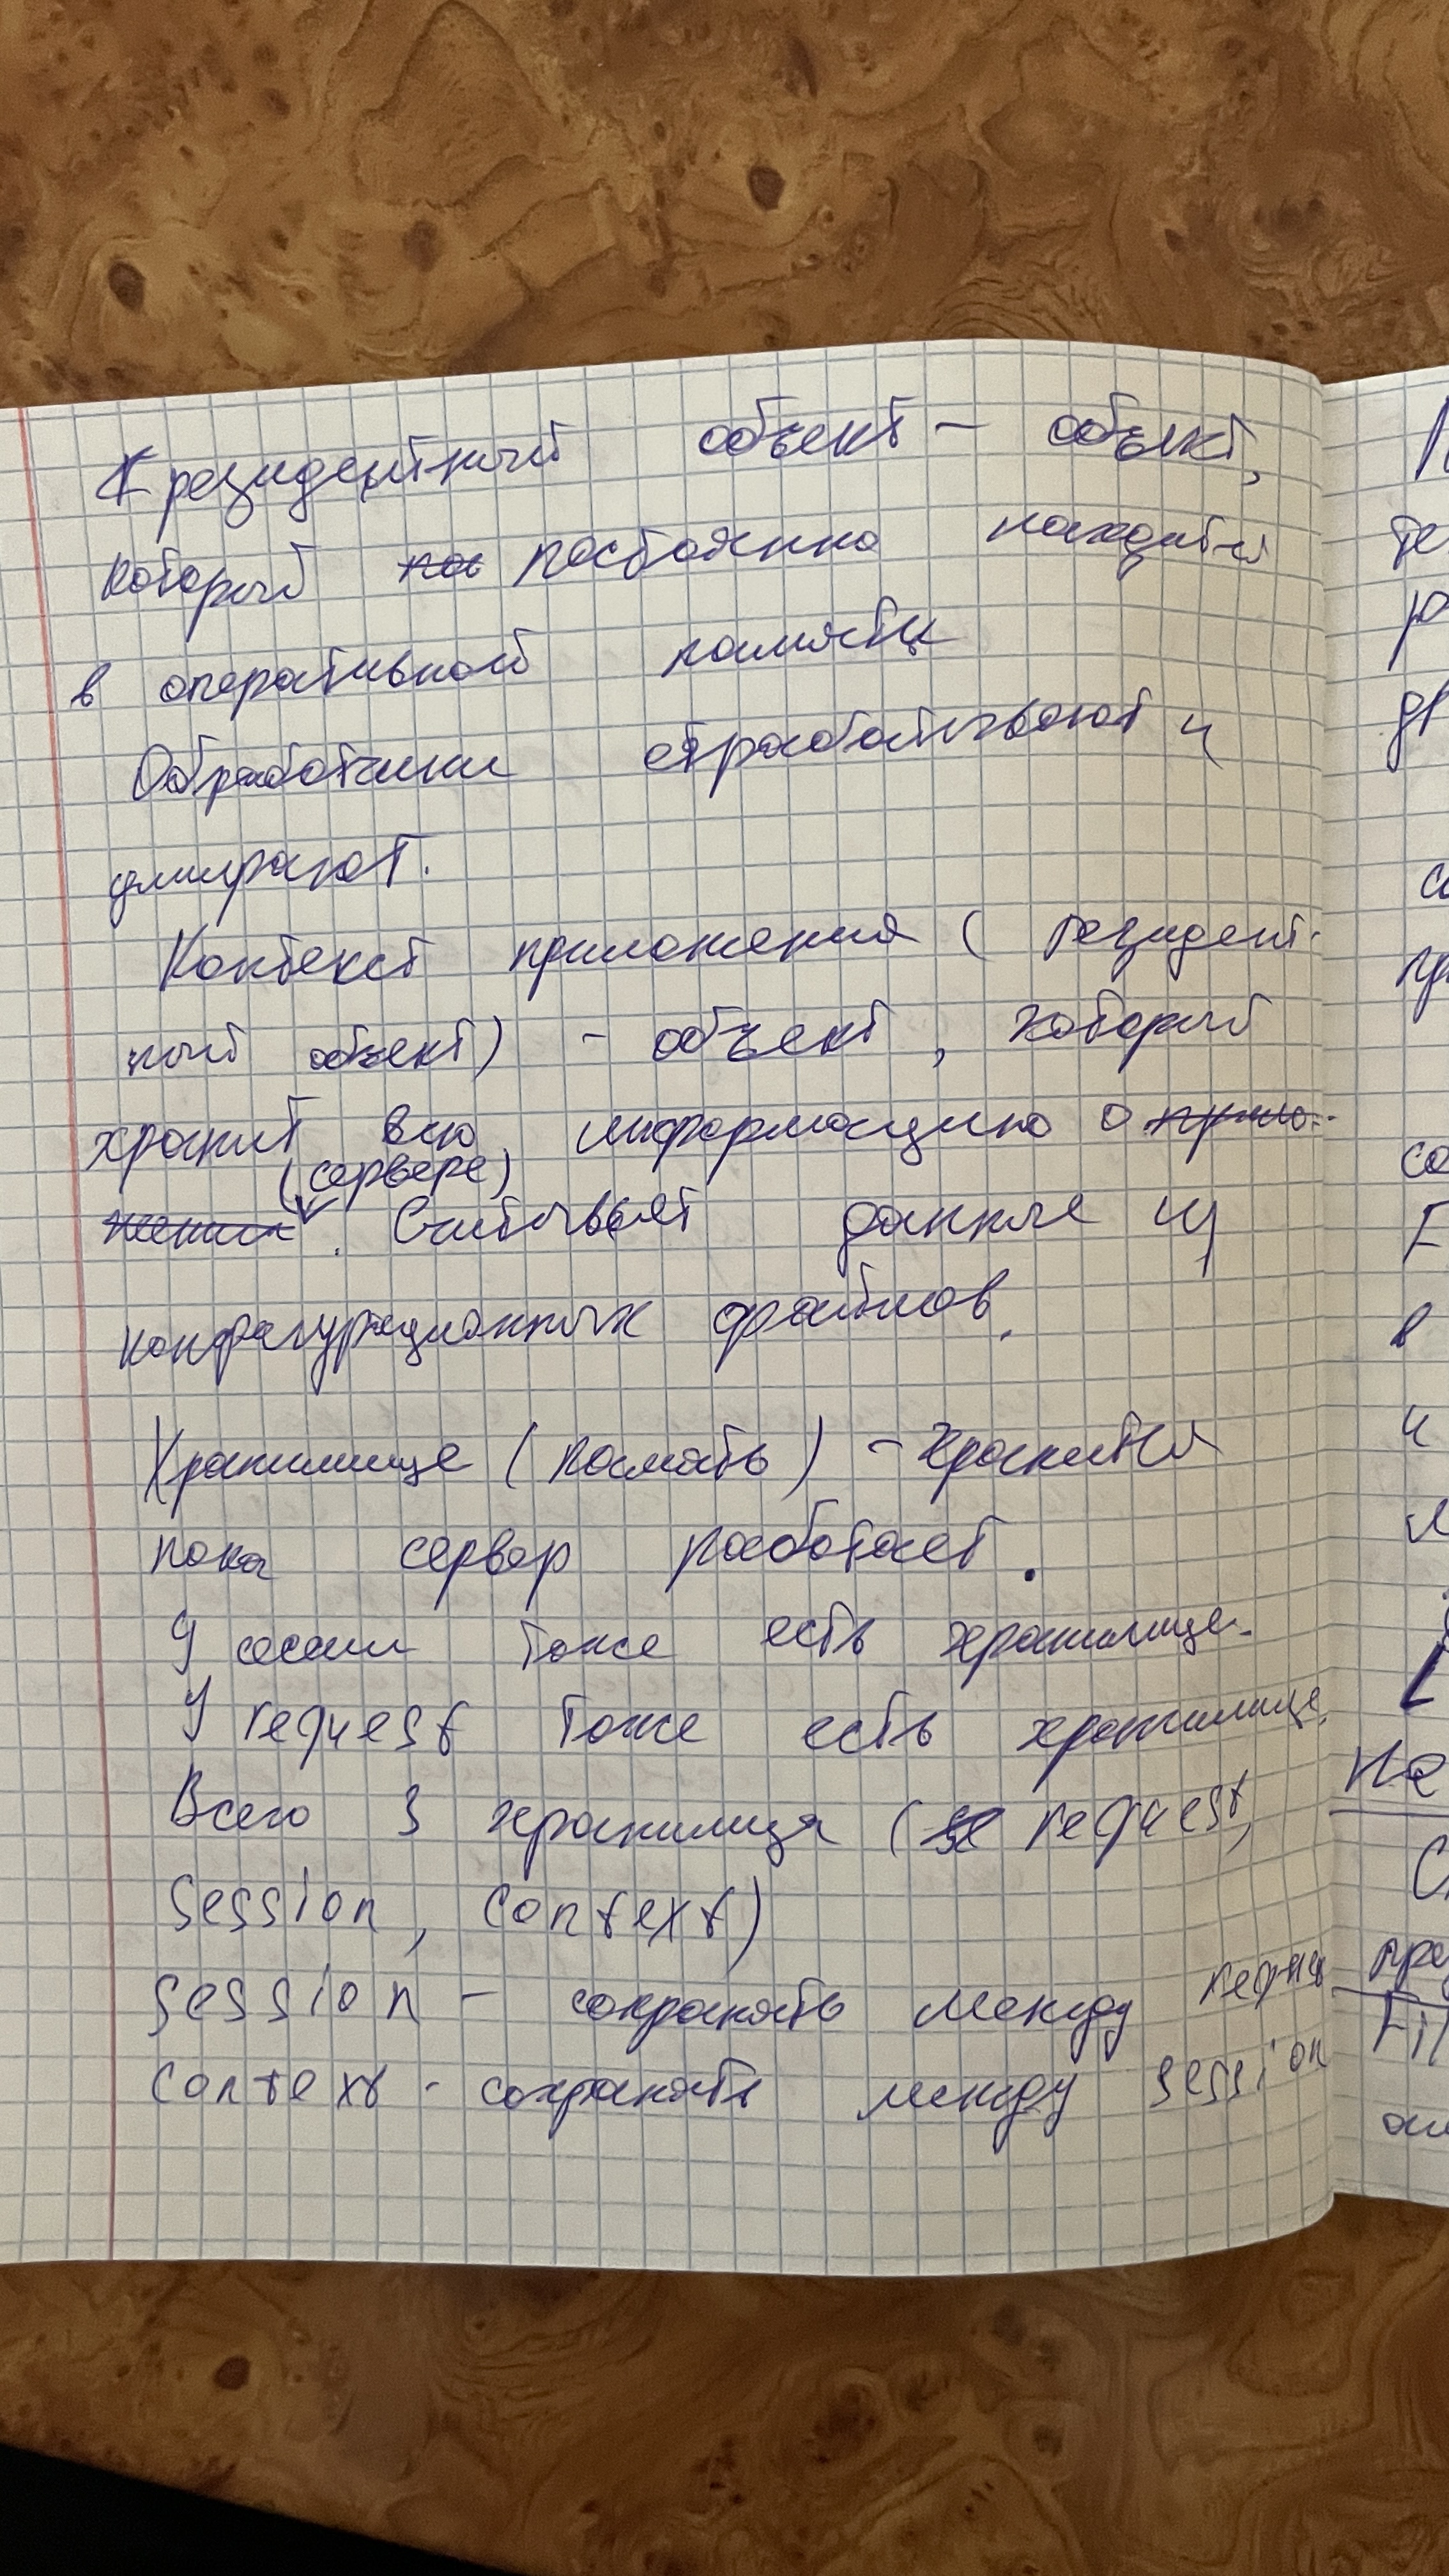 резидентный объект - объект,
который постоянно находится
в оперативной памяти
Обработчики отрабатывают и
умирают.
Контекст приложения (резидент-
ный объект) - объект, который
хранит всю информацию о прило-
жении (сервере). Считывает данные из
конфигурационных файлов.
Хранилище (память) - хранится
пока сервер работает.
У сессии тоже есть хранилище.
У request тоже есть хранилище.
Всего 3 хранилища (request,
session, context)
session - сохранять между
context - сохранять между session
не